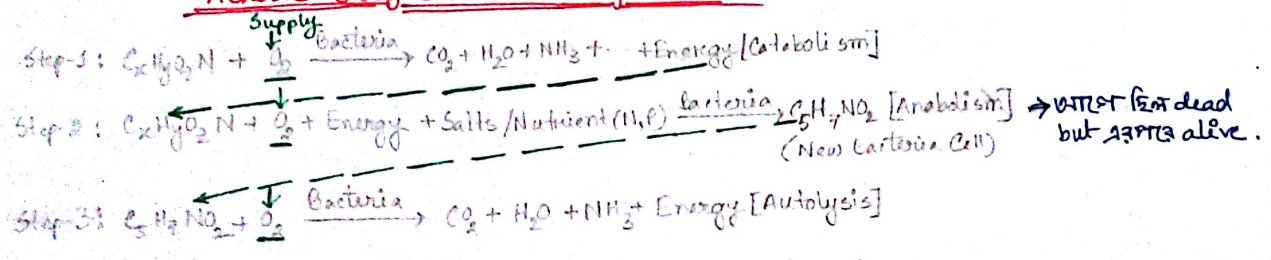 Supply
Step-1: CxHyO2N + O2 Bacteria → CO2 + H2O + NH3 + .. + Energy [Catabolism]
Step-2: CxHyO2N + O2 + Energy + Salts/Nutrient (N,P) bacteria → C5H7NO2 [Anabolism] → আগে ছিল dead
(New bacteria Cell) but এরপরে alive.
Step-3: C5H7NO2 + O2 Bacteria → CO2 + H2O + NH3 + Energy [Autolysis]